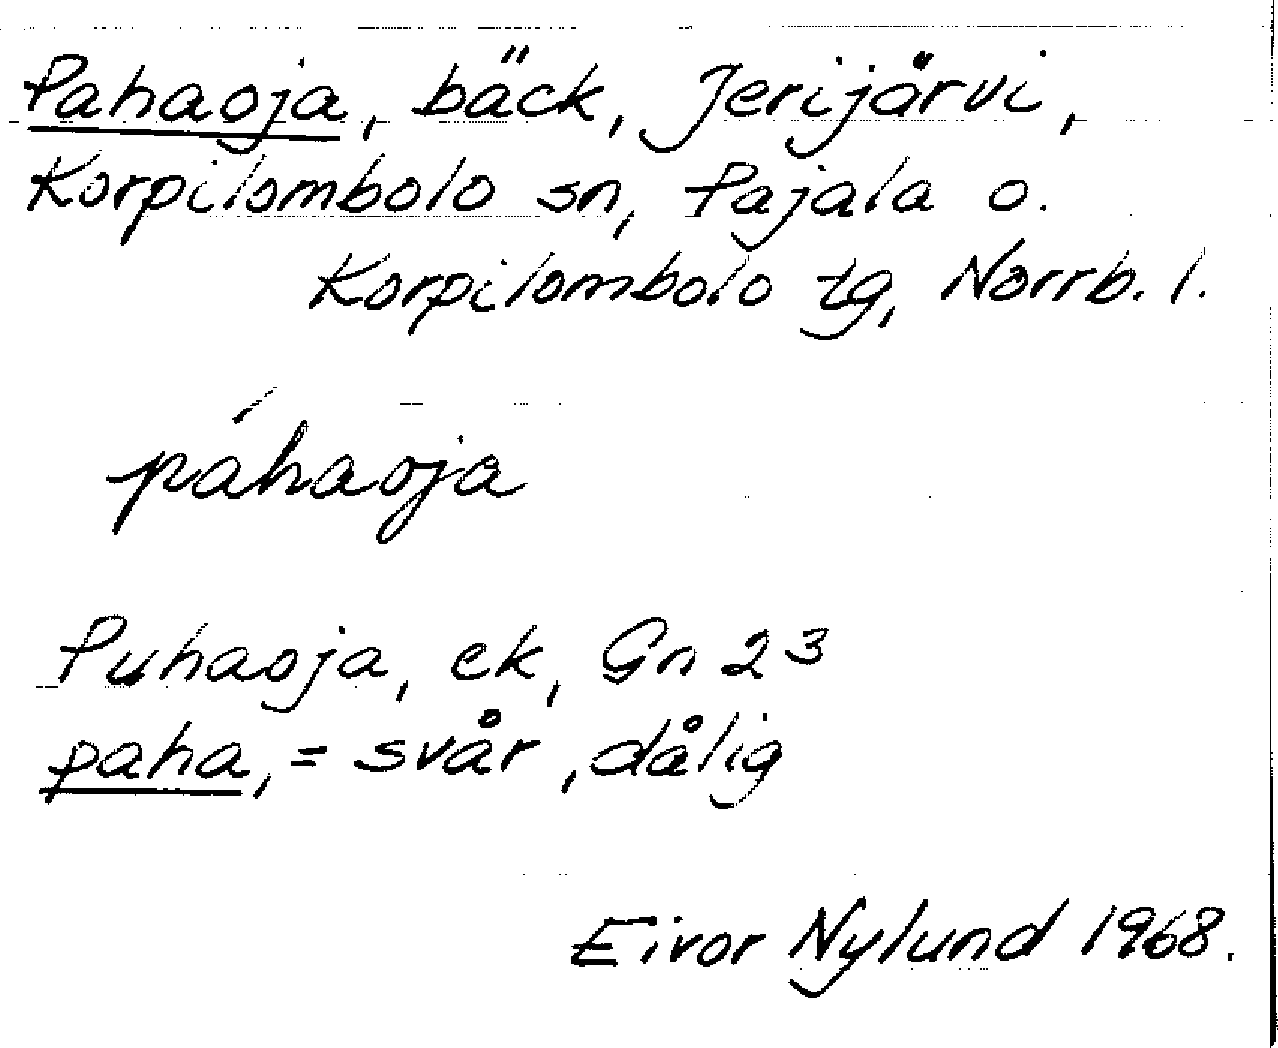 Pahaoja, bäck, Jerijärvi,
Korpilombolo sn, Pajala o.
Korpilombolo tg, Norrb. l.
páhaoja
Puhaoja, ek, Gn 2 3
paha, = svår, dålig
Eivor Nylund 1968.